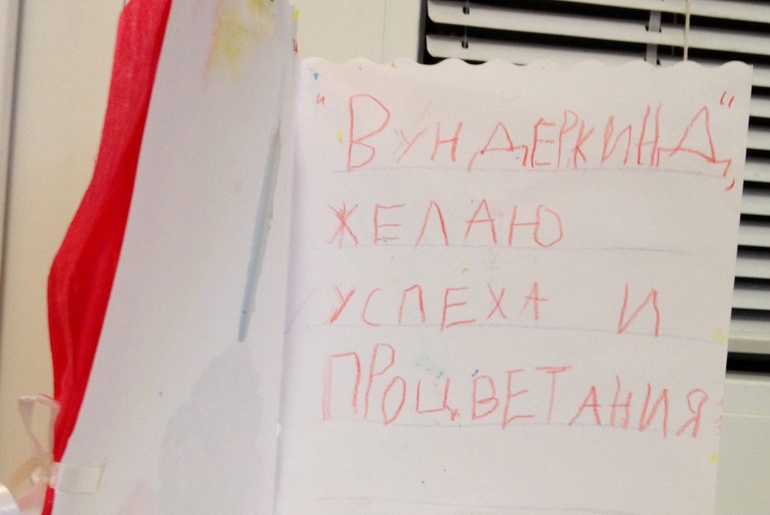 "ВУНДЕРКИНД",
ЖЕЛАЮ
УСПЕХА И
ПРОЦВЕТАНИЯ